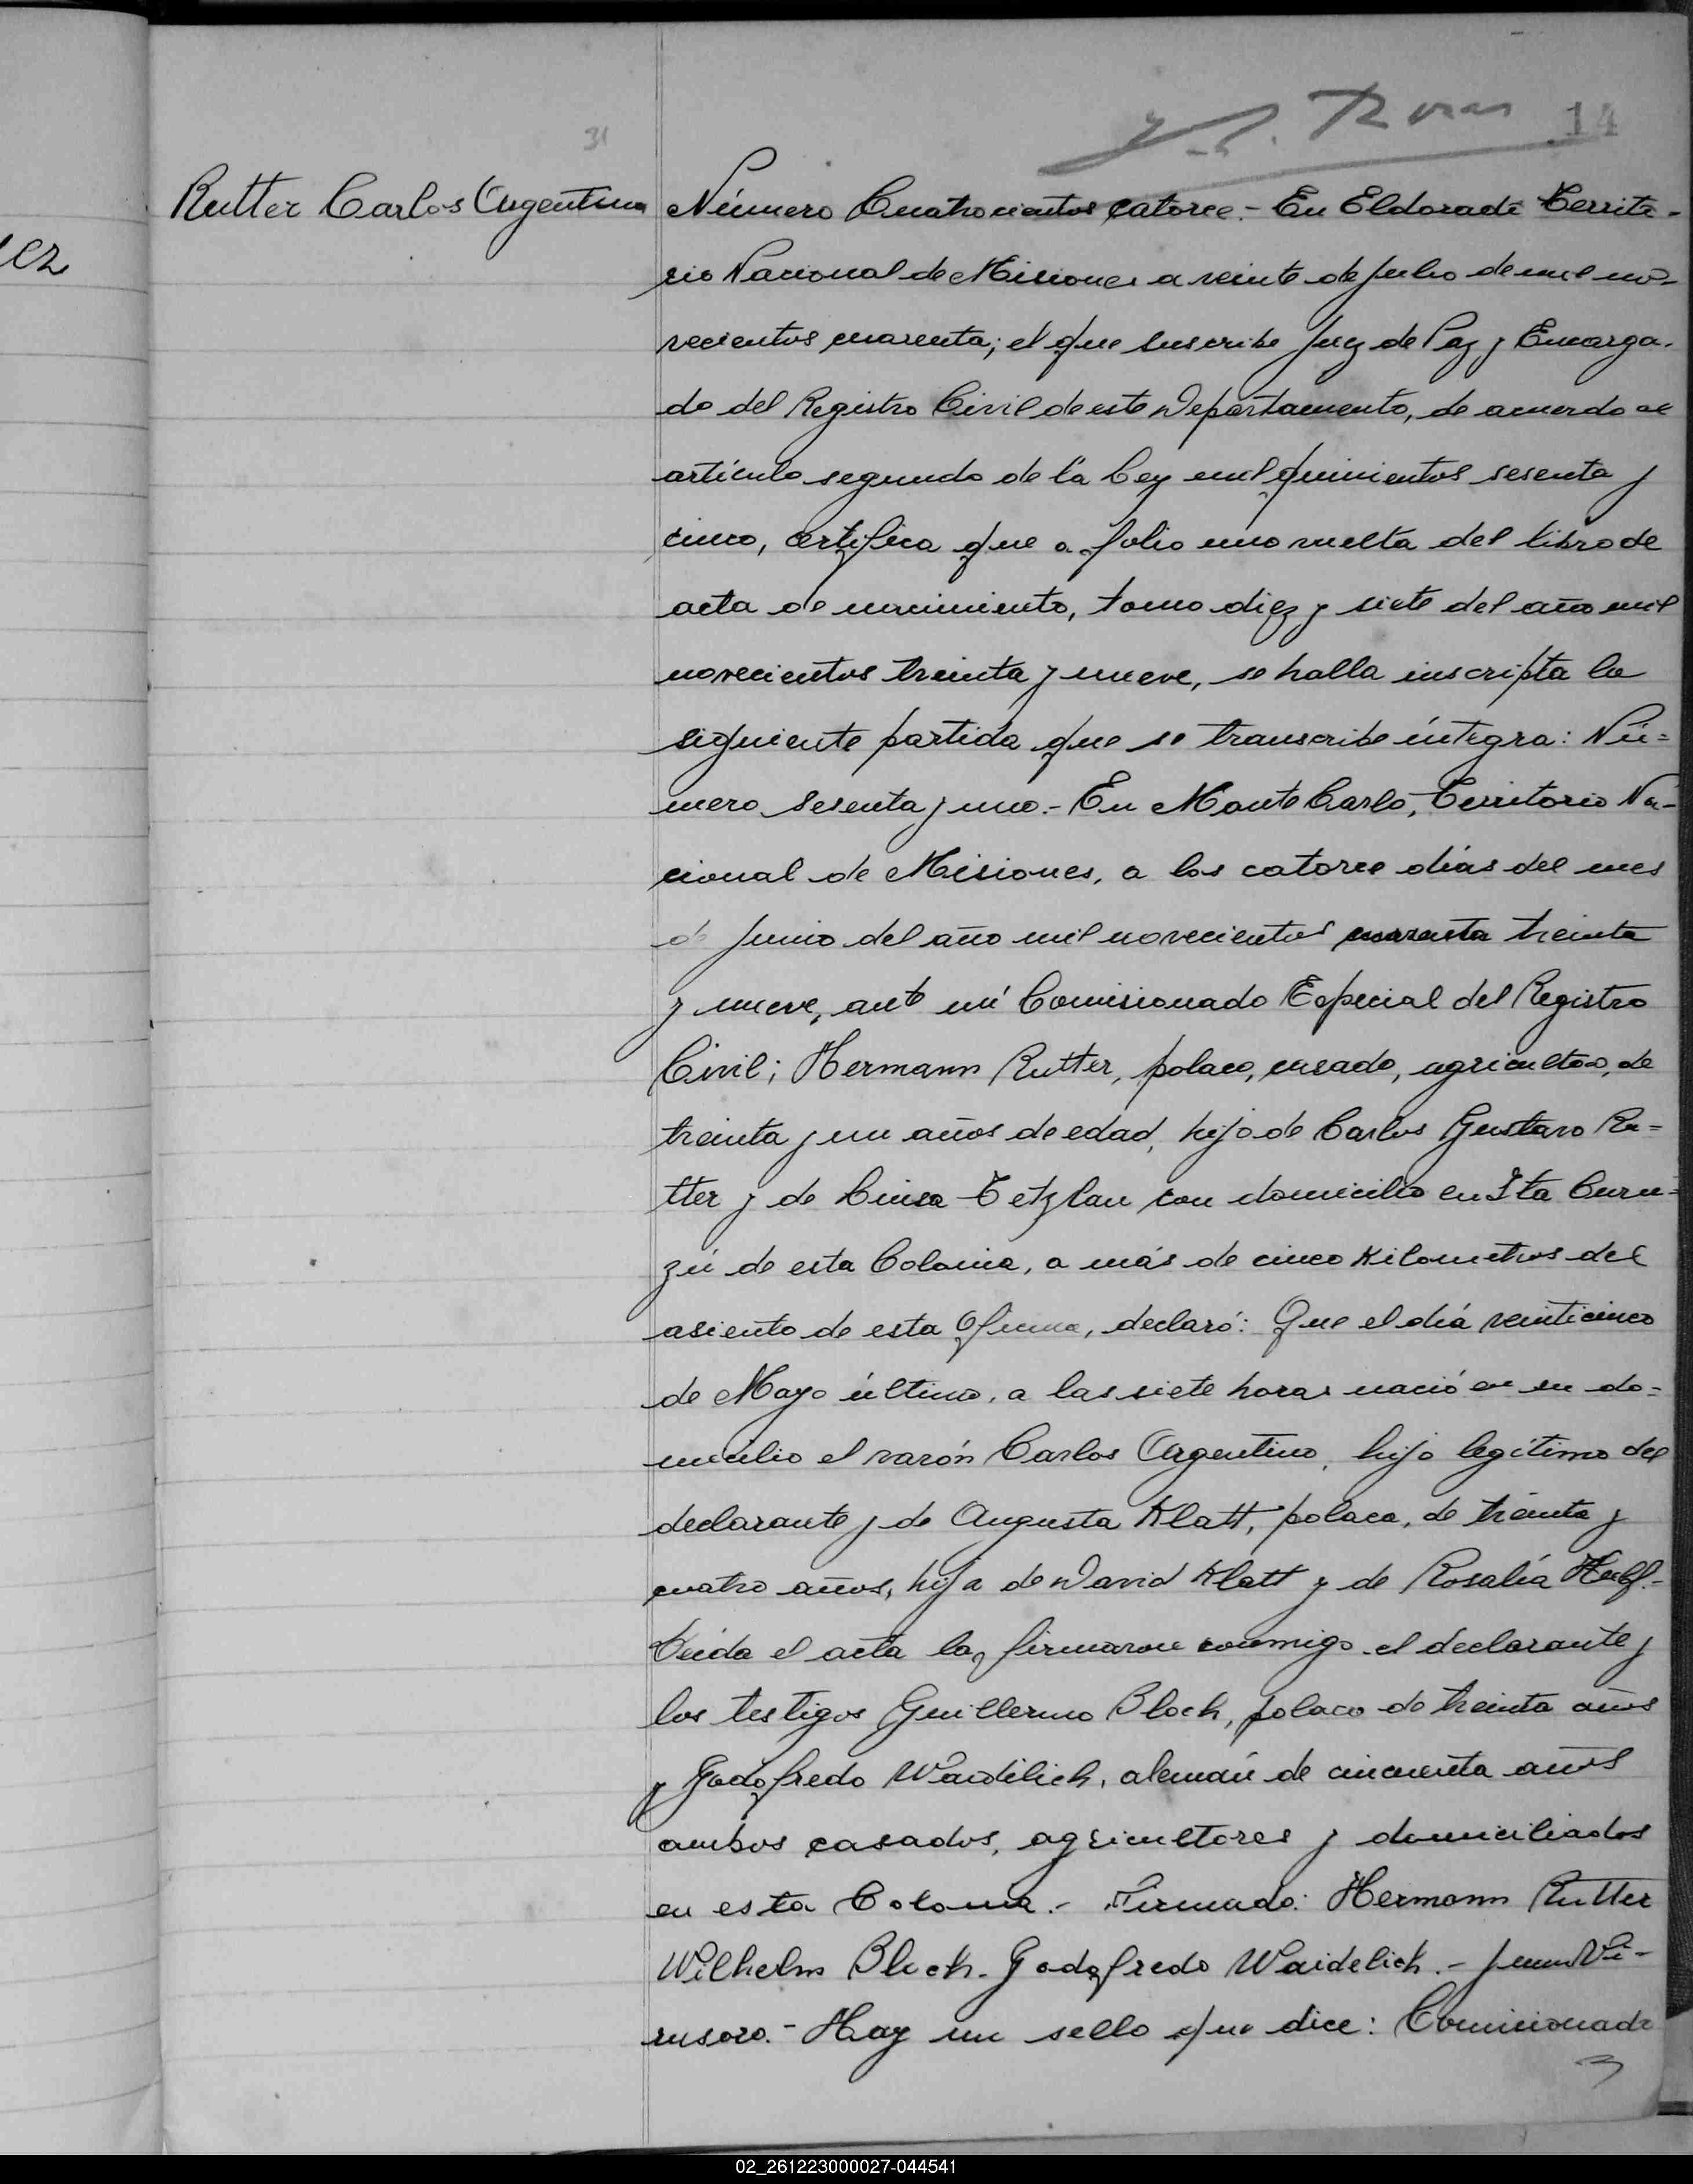 14
31
Rutter Carlos Argentino
ez
Número Cuatrocientos catorce.- En Eldorado Territo-
rio Nacional de Misiones a veinte de Julio de mil no-
vecientos cuarenta; el que suscribe Juez de Paz y Encarga-
do del Registro Civil de este Departamento, de acuerdo al
artículo segundo de la Ley mil quinientos sesenta y
cinco, certifica que a folio uno vuelta del libro de
acta de nacimiento, tomo diez y siete del año mil
novecientos treinta y nueve, se halla inscripta la
siguiente partida que se transcribe íntegra: Nú=
mero sesenta y uno.- En Monte Carlo, Territorio Na-
cional de Misiones, a los catorce días del mes
de Junio del año mil novecientos cuarenta treinta
y nueve, ante mí Comisionado Especial del Registro
Civil; Hermann Rutter, polaco, casado, agricultor, de
treinta y un años de edad, hijo de Carlos Gustavo Ru=
tter y de Luisa Tetzlau con domicilio en Ita Curu=
zú de esta Colonia, a más de cinco kilometros del
asiento de esta Oficina, declaró: Que el día veinticinco
de Mayo último, a las siete horas nació en su do=
micilio el varón Carlos Argentino, hijo legítimo del
declarante y de Augusta Klatt, polaca, de treinta y
cuatro años, hija de David Klatt y de Rosalía
Leída el acta la firmaron conmigo el declarante y
los testigos Guillermo Bloch, polaco de treinta años
y Godofredo Waidelich, alemán de cincuenta años
ambos casados, agricultores y domiciliados
en esta Colonia.- Firmado: Hermann Rutter
Wilhelm Bloch. Godofredo Waidelich.-
Hay un sello que dice: Comisionado
3
02_261223000027-044541